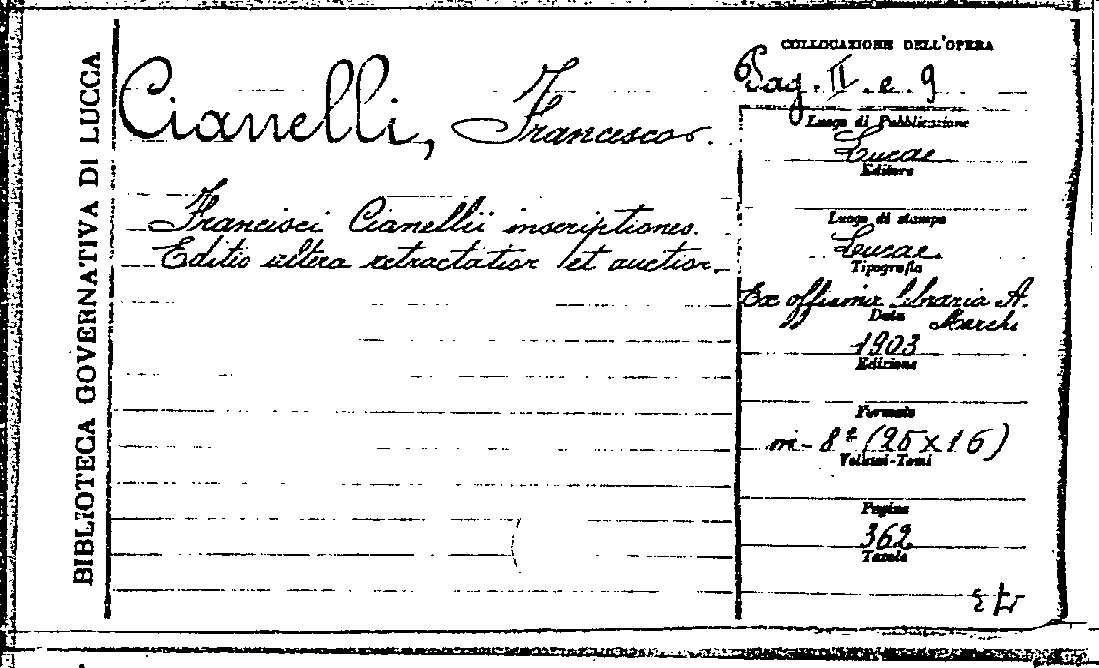 BIBLIOTECA GOVERNATIVA DI LUCCA
Cianelli, Francesco.
Francisci Cianellii inscriptiones.
Editio altera retractatior et auctior.
COLLOCAZIONE DELL'OPERA
Pag. II. e. 9
Luogo di Pubblicazione
Lucae
Editore
Luogo di stampa
Lucae
Tipografia
Ex officina libraria A.
Marchi
Data
1903
Edizione
Formato
in-8º (25 x 16)
Volumi-Tomi
Pagine
362
Tavole